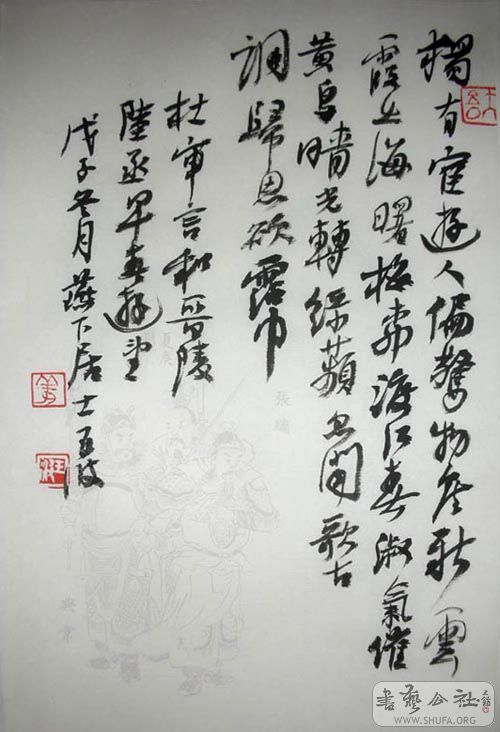 獨有宦遊人偏驚物候新雲
霞出海曙梅柳渡江春淑氣催
黃鳥晴光轉綠蘋忽聞歌古
調歸思欲霑巾
杜審言和晉陵
陸丞早春遊望
戊子冬月燕下居士
張繡
典韋
書藝公社
WWW.SHUFA.ORG